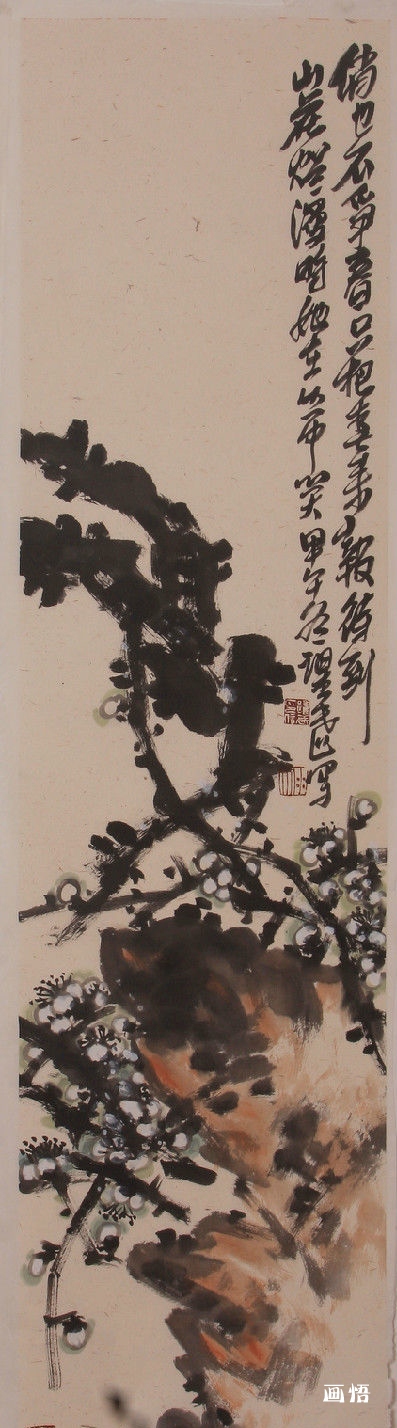 俏也不争春只把春来报待到
山花烂漫時她在丛中笑甲午冬
画悟